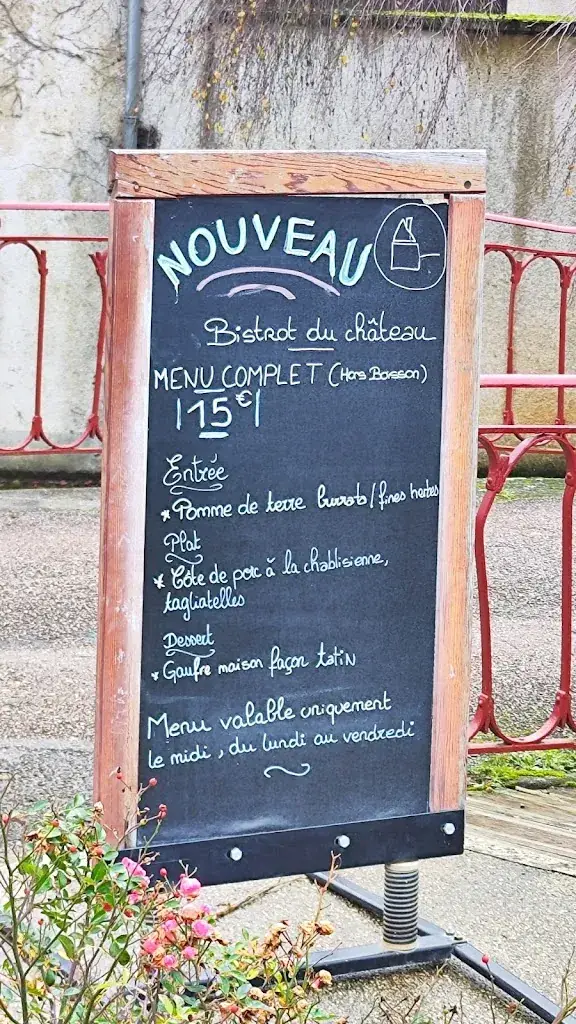 NOUVEAU
Bistrot du château
MENU COMPLET (Hors Boisson)
15€
Entrée
* Pomme de terre burrata / fines herbes
Plat
* Côte de porc à la chablisienne,
tagliatelles
Dessert
* Gaufre maison façon tatin
Menu valable uniquement
le midi, du lundi au vendredi